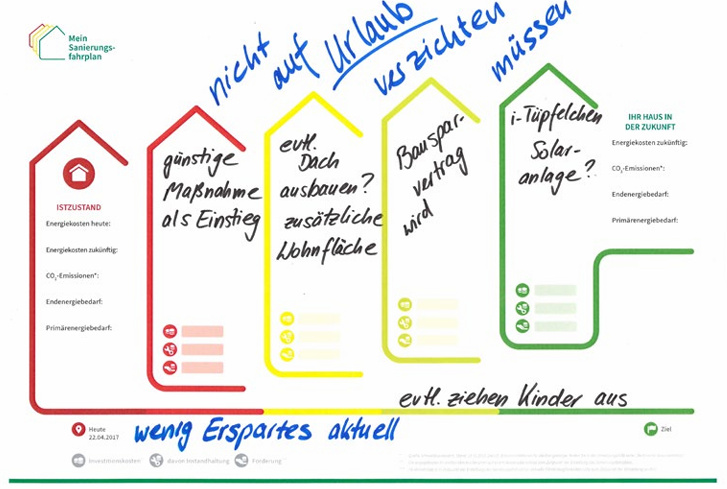 Mein
Sanierungs-
fahrplan
nicht auf Urlaub verzichten müssen
ISTZUSTAND
Energiekosten heute:
Energiekosten zukünftig:
CO₂-Emissionen*:
Endenergiebedarf:
Primärenergiebedarf:
günstige
Maßnahme
als Einstieg
evtl.
Dach
ausbauen?
zusätzliche
Wohnfläche
Bauspar-
vertrag
wird
i-Tüpfelchen
Solar-
anlage?
IHR HAUS IN
DER ZUKUNFT
Energiekosten zukünftig:
CO₂-Emissionen*:
Endenergiebedarf:
Primärenergiebedarf:
evtl. ziehen Kinder aus
Heute
22.04.2017
wenig Erspartes aktuell
Ziel
Investitionskosten
davon Instandhaltung
Förderung